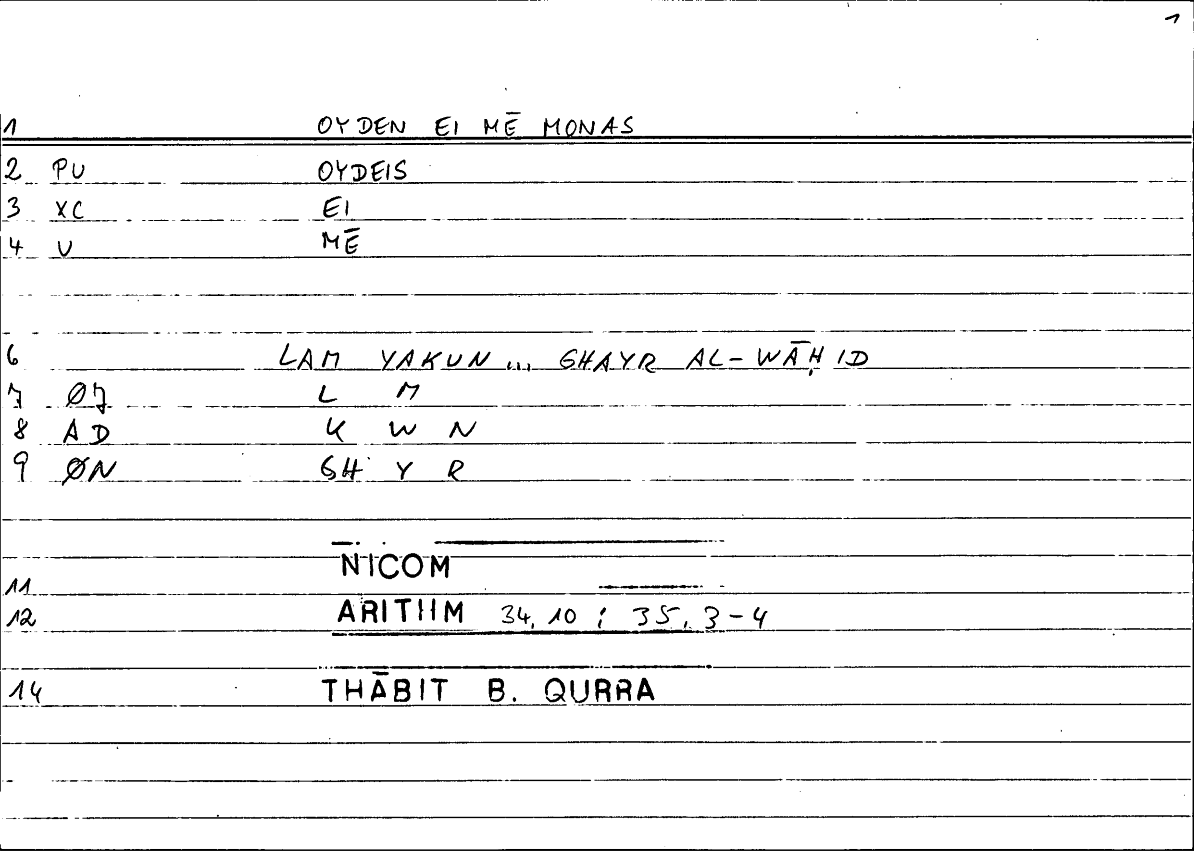 1
1 OYDEN EI MĒ MONAS
2 PU OYDEIS
3 XC EI
4 U MĒ
6 LAM YAKUN ... GHAYR AL-WĀḤID
7 ØJ L M
8 AD K W N
9 ØN GH Y R
NICOM
11
12 ARITHM 34,10 ; 35,3-4
14 THĀBIT B. QURRA